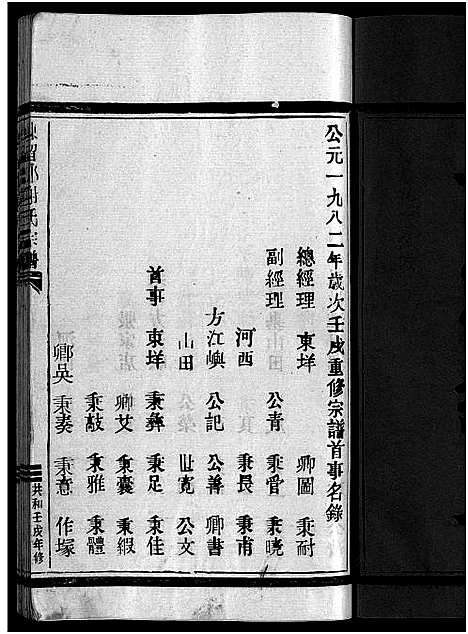 公元一九八二年歲次壬戌重修宗譜首事名錄
總經理 東垟 卿圖 秉耐
副經理 公青 秉管 秉曉
河西 秉長 秉甫
方江嶼 公記 公善 卿書
山田 世寬 公文
首事 東垟 秉彝 秉足 秉佳
卿艾 秉囊 秉緞
秉敲 秉雅 秉體
卿吳 秉奏 秉意 作塚
陳留郡謝氏宗譜
共和壬戌年修